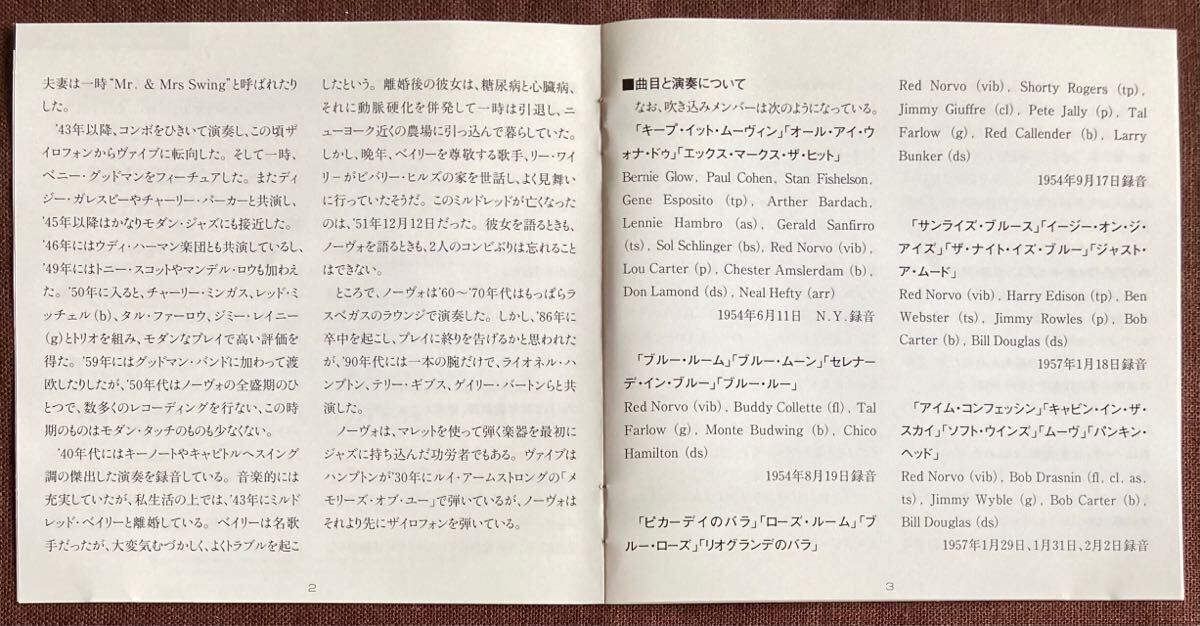 夫妻は一時“Mr. & Mrs Swing”と呼ばれたり
した。
'43年以降、コンボをひきいて演奏し、この頃ザ
イロフォンからヴァイブに転向した。そして一時、
ベニー・グッドマンをフィーチュアした。またディ
ジー・ガレスピーやチャーリー・パーカーと共演し、
'45年以降はかなりモダン・ジャズにも接近した。
'46年にはウディ・ハーマン楽団とも共演しているし、
'49年にはトニー・スコットやマンデル・ロウも加わえ
た。'50年に入ると、チャーリー・ミンガス、レッド・ミ
ッチェル(b)、タル・ファーロウ、ジミー・レイニー
(g)とトリオを組み、モダンなプレイで高い評価を
得た。'59年にはグッドマン・バンドに加わって渡
欧したりしたが、'50年代はノーヴォの全盛期のひ
とつで、数多くのレコーディングを行ない、この時
期のものはモダン・タッチのものも少なくない。
'40年代にはキーノートやキャピトルへスイング
調の傑出した演奏を録音している。音楽的には
充実していたが、私生活の上では、'43年にミルド
レッド・ベイリーと離婚している。ベイリーは名歌
手だったが、大変気むづかしく、よくトラブルを起こ
したという。離婚後の彼女は、糖尿病と心臓病、
それに動脈硬化を併発して一時は引退し、ニ
ューヨーク近くの農場に引っ込んで暮らしていた。
しかし、晩年、ベイリーを尊敬する歌手、リー・ワイ
リーがビバリー・ヒルズの家を世話し、よく見舞い
に行っていたそうだ。このミルドレッドが亡くなった
のは、'51年12月12日だった。彼女を語るときも、
ノーヴォを語るときも、2人のコンビぶりは忘れること
はできない。
ところで、ノーヴォは'60〜'70年代はもっぱらラ
スベガスのラウンジで演奏した。しかし、'86年に
卒中を起こし、プレイに終りを告げるかと思われた
が、'90年代には一本の腕だけで、ライオネル・ハ
ンプトン、テリー・ギブス、ゲイリー・バートンらと共
演した。
ノーヴォは、マレットを使って弾く楽器を最初に
ジャズに持ち込んだ功労者でもある。ヴァイブは
ハンプトンが'30年にルイ・アームストロングの「メ
モリーズ・オブ・ユー」で弾いているが、ノーヴォは
それより先にザイロフォンを弾いている。
2
■曲目と演奏について
なお、吹き込みメンバーは次のようになっている。
「キープ・イット・ムーヴィン」「オール・アイ・ウ
ォナ・ドゥ」「エックス・マークス・ザ・ヒット」
Bernie Glow, Paul Cohen, Stan Fishelson,
Gene Esposito (tp), Arther Bardach,
Lennie Hambro (as), Gerald Sanfirro
(ts), Sol Schlinger (bs), Red Norvo (vib),
Lou Carter (p), Chester Amslerdam (b),
Don Lamond (ds), Neal Hefty (arr)
1954年6月11日 N.Y.録音
「ブルー・ルーム」「ブルー・ムーン」「セレナー
デ・イン・ブルー」「ブルー・ルー」
Red Norvo (vib), Buddy Collette (fl), Tal
Farlow (g), Monte Budwing (b), Chico
Hamilton (ds)
1954年8月19日録音
「ピカーデイのバラ」「ローズ・ルーム」「ブ
ルー・ローズ」「リオグランデのバラ」
Red Norvo (vib), Shorty Rogers (tp),
Jimmy Giuffre (cl), Pete Jally (p), Tal
Farlow (g), Red Callender (b), Larry
Bunker (ds)
1954年9月17日録音
「サンライズ・ブルース」「イージー・オン・ジ・
アイズ」「ザ・ナイト・イズ・ブルー」「ジャスト・
ア・ムード」
Red Norvo (vib), Harry Edison (tp), Ben
Webster (ts), Jimmy Rowles (p), Bob
Carter (b), Bill Douglas (ds)
1957年1月18日録音
「アイム・コンフェッシン」「キャビン・イン・ザ・
スカイ」「ソフト・ウインズ」「ムーヴ」「パンキン・
ヘッド」
Red Norvo (vib), Bob Drasnin (fl. cl. as.
ts), Jimmy Wyble (g), Bob Carter (b),
Bill Douglas (ds)
1957年1月29日、1月31日、2月2日録音
3